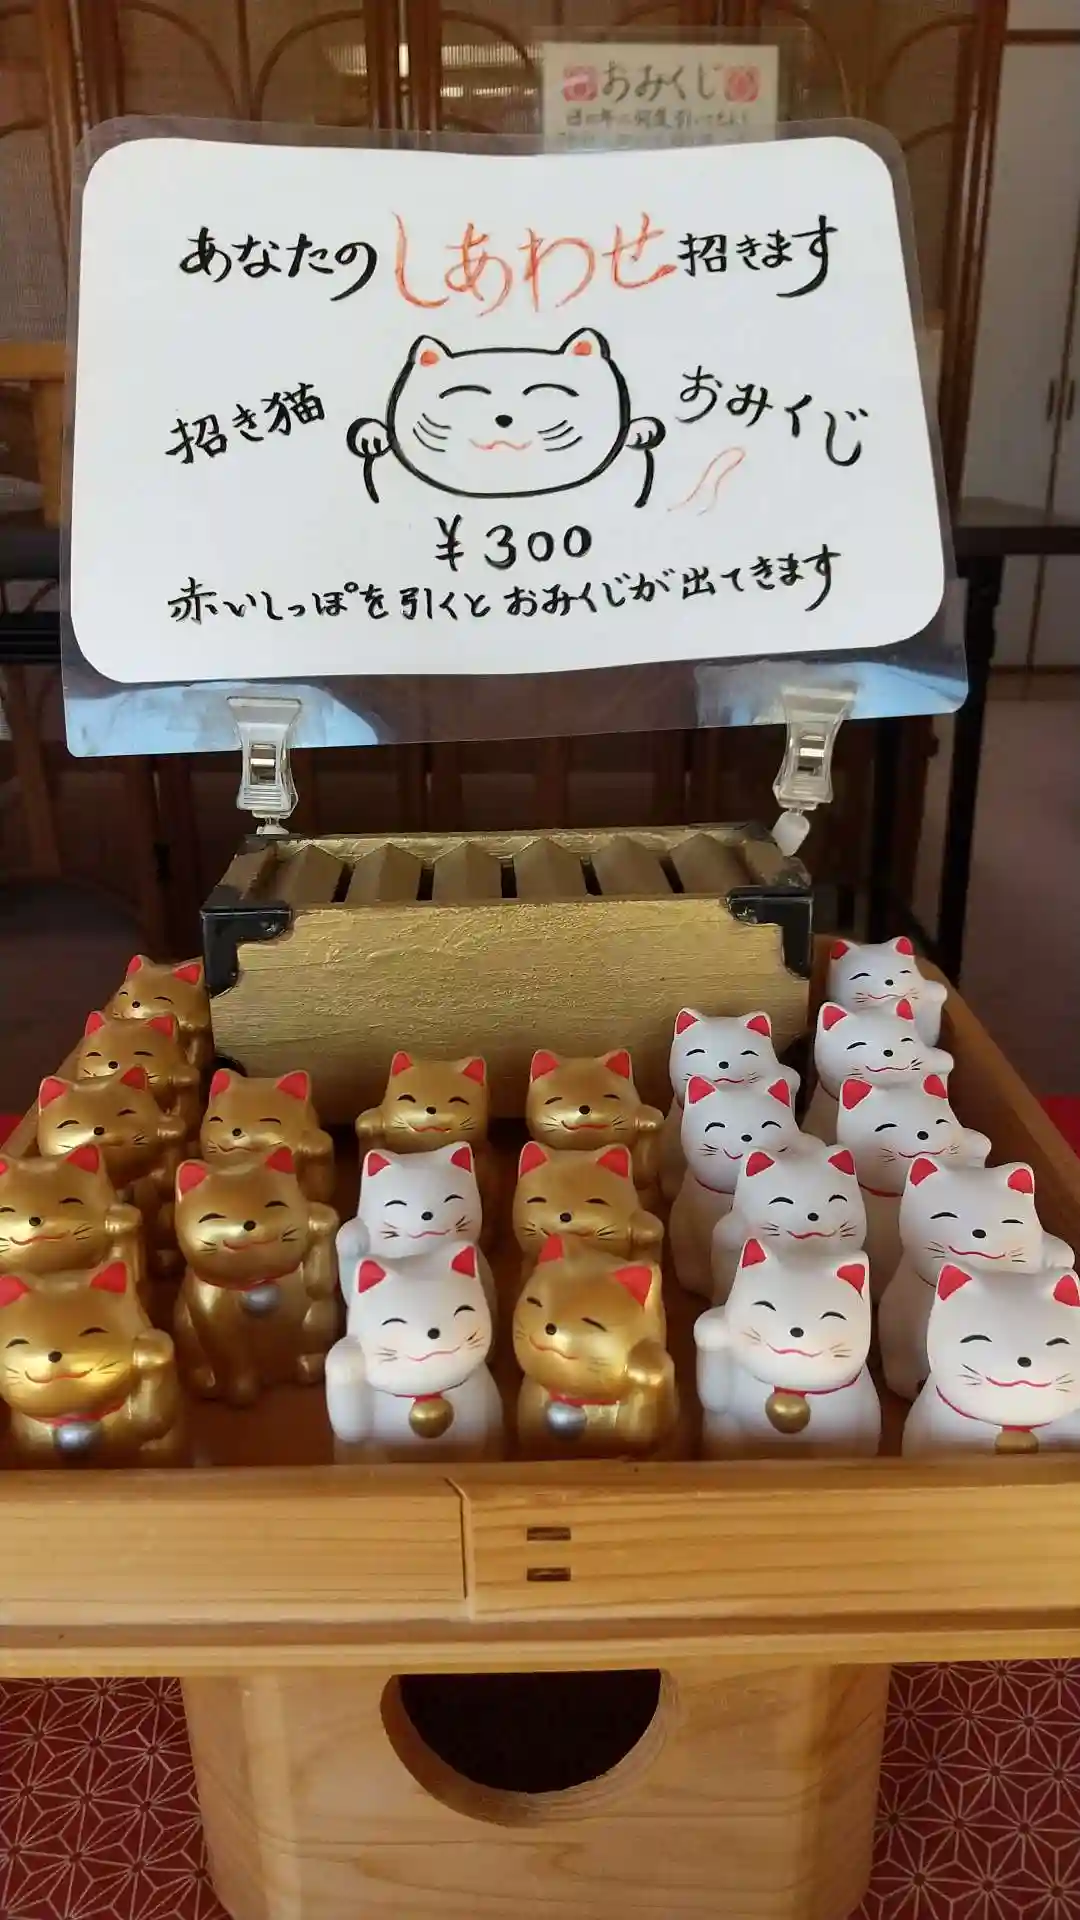 おみくじ
あなたのしあわせ招きます
招き猫
おみくじ
¥300
赤いしっぽを引くとおみくじが出てきます